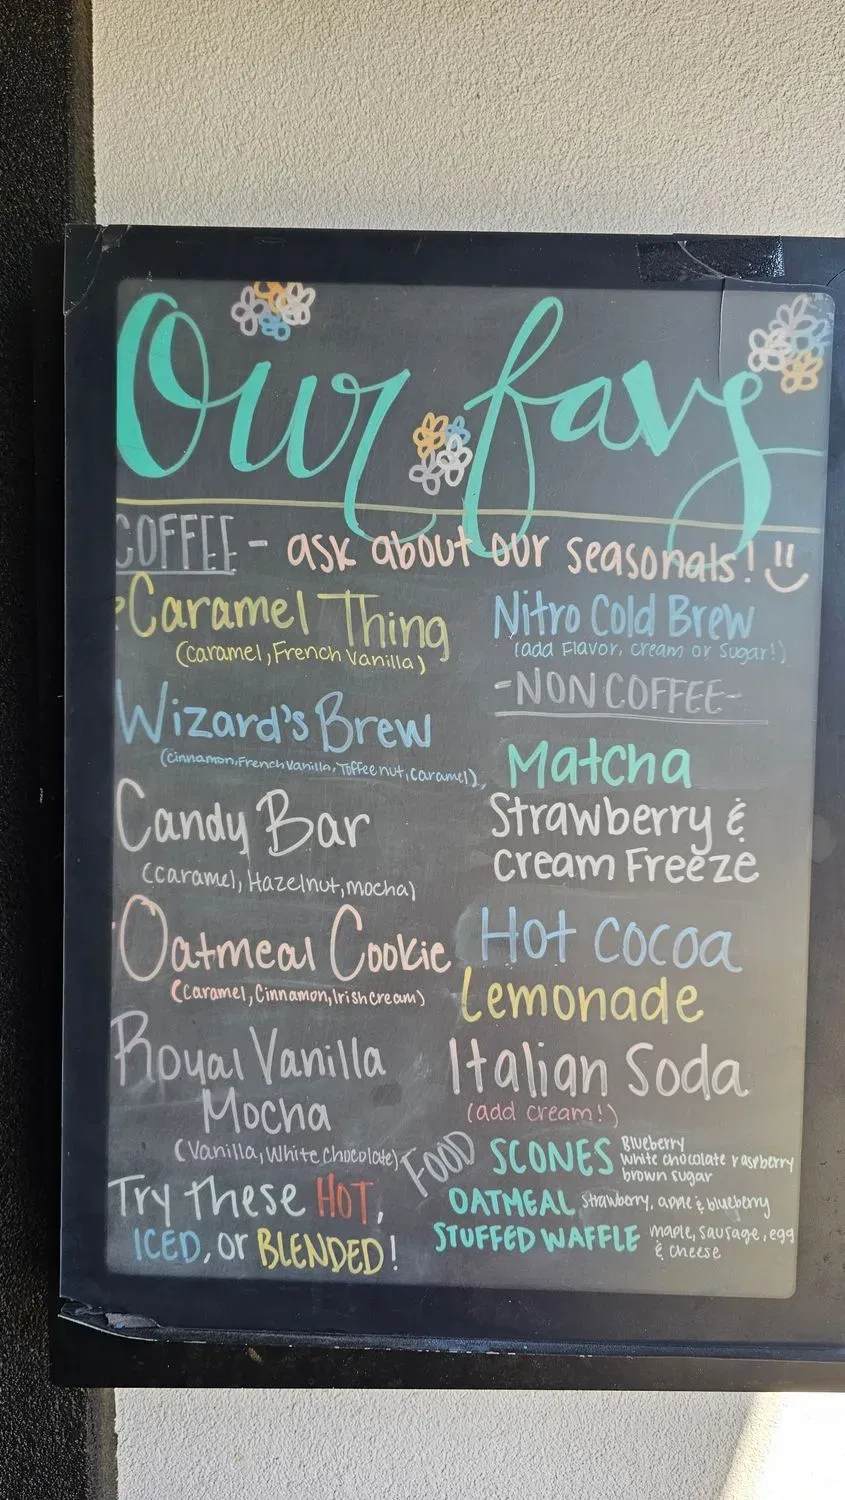 Our favs
COFFEE - ask about our seasonals!
Caramel Thing
(caramel, French Vanilla)
Wizard's Brew
(cinnamon, French Vanilla, Toffee nut, caramel)
Candy Bar
(caramel, Hazelnut, mocha)
Oatmeal Cookie
(caramel, Cinnamon, Irish cream)
Royal Vanilla
Mocha
(Vanilla, White Chocolate)
Try these HOT,
ICED, or BLENDED!
Nitro Cold Brew
(add Flavor, cream or Sugar!)
-NON COFFEE-
Matcha
Strawberry &
cream Freeze
Hot cocoa
Lemonade
Italian Soda
(add cream!)
FOOD
SCONES Blueberry
white chocolate raspberry
brown sugar
OATMEAL Strawberry, apple & blueberry
STUFFED WAFFLE maple, sausage, egg
& cheese